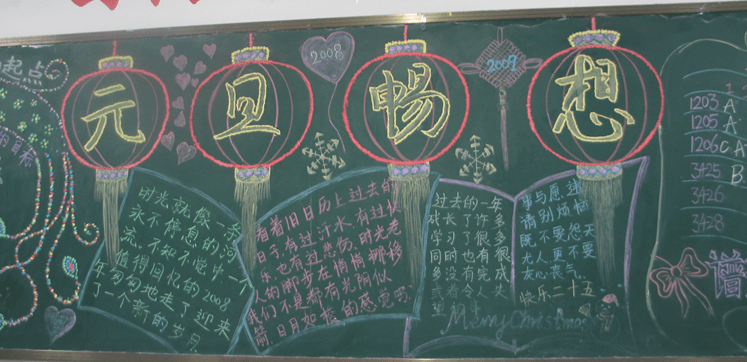 元旦畅想
2008
2009
起点
时光就像一条
永不停息的河
流,不知不觉中,一个
值得回忆的2008
年匆匆地走了迎来
了一个新的岁月
看着旧日历上过去的
日子,有过汗水,有过快
乐,也有过悲伤,时光老
人的脚步在悄悄挪移
我们不是都有光阴似
箭,日月如梭的感觉吗
过去的一年
成长了许多
学习了很多
同时也有很
多没有完成
或者令人失
望
事与愿违
请别烦恼
既不要怨天
尤人更不要
灰心丧气
快乐二十五
Merry Christmas
1203 A
1205 A
1206 C A
3425 B
3426
3428